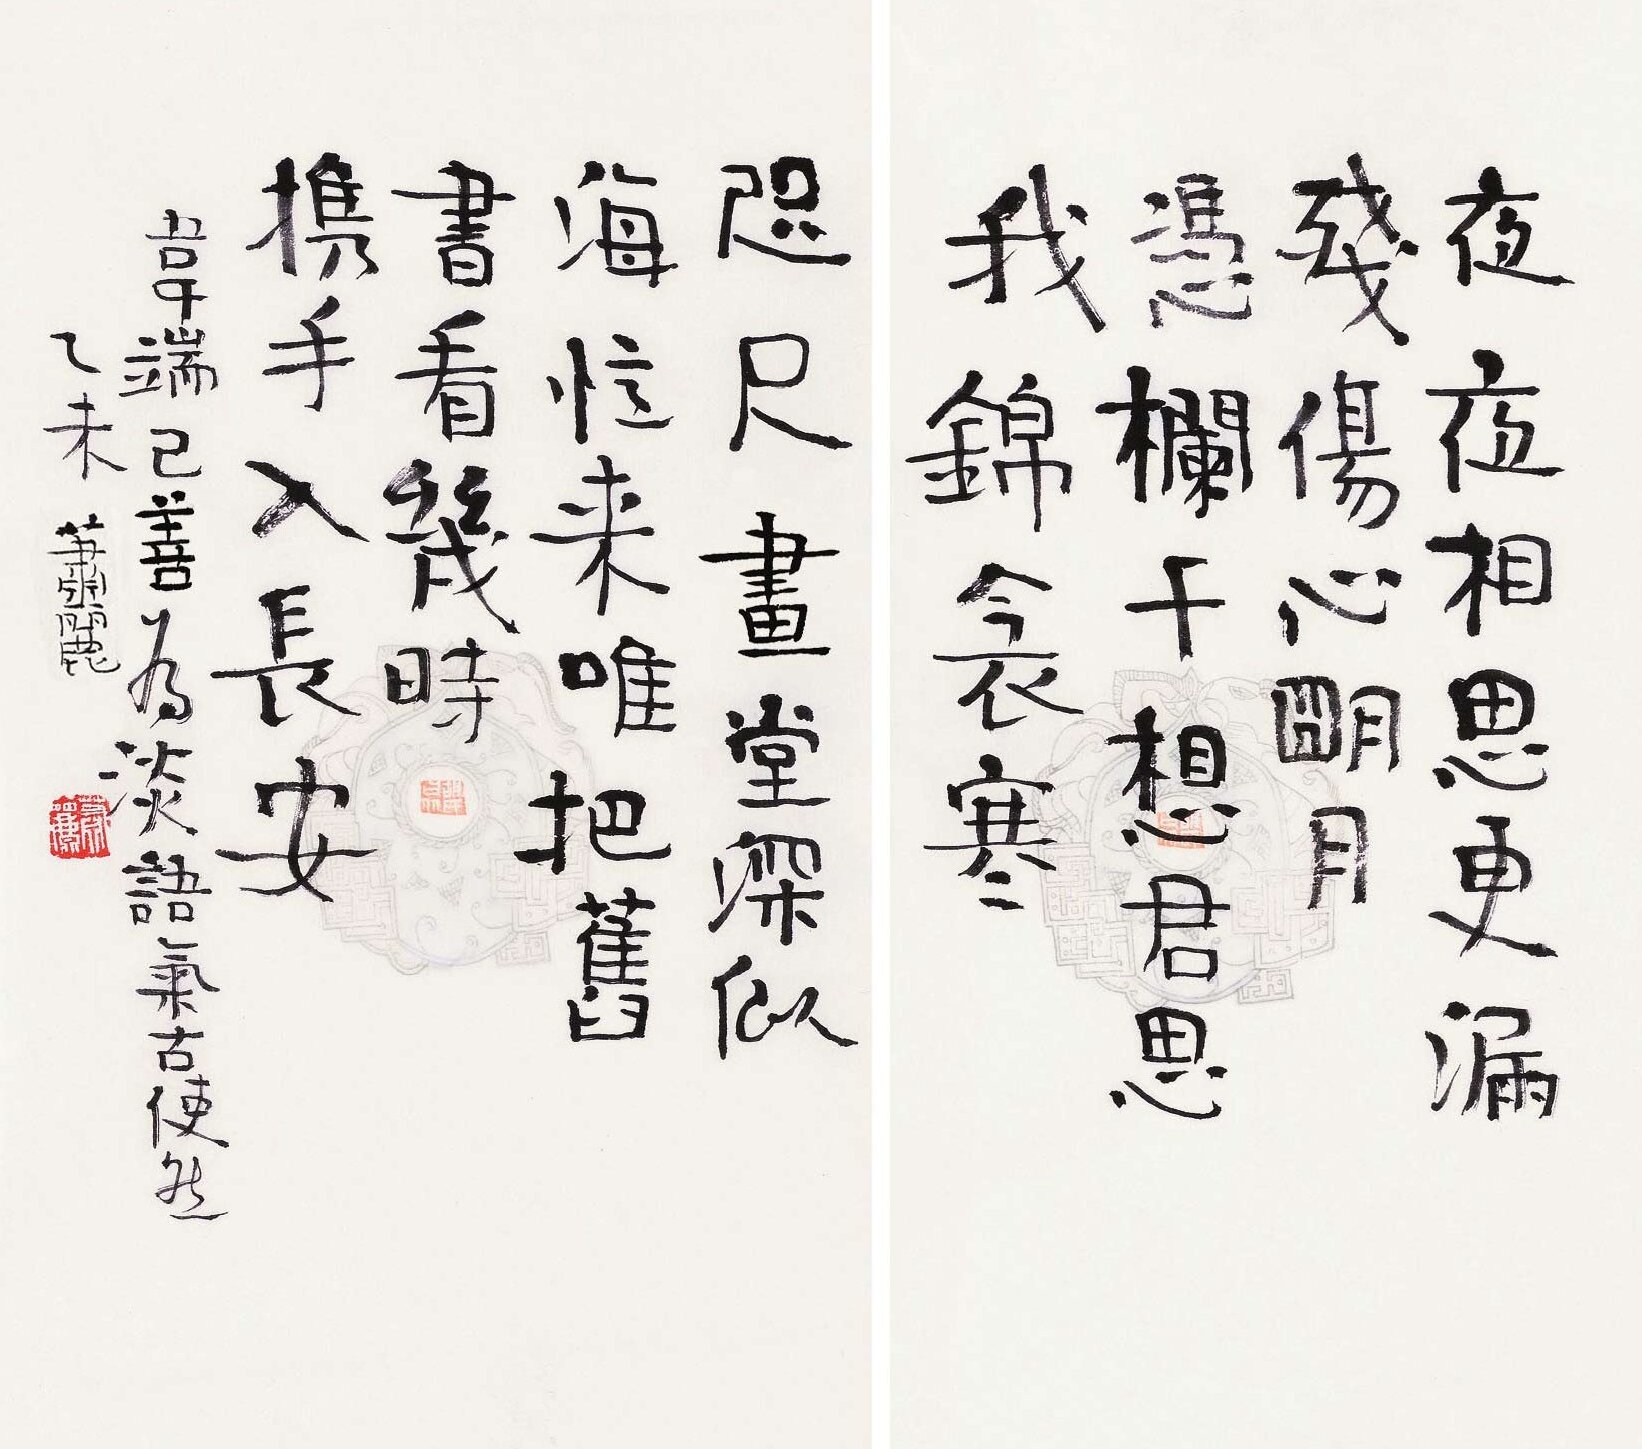 夜夜相思更漏
殘傷心朙月
憑欄干想君思
我錦衾寒
咫尺畫堂深似
海憶来唯把舊
書看幾時
携手入長安
韋端己善為淡語氣古使然
乙未 蕭麗